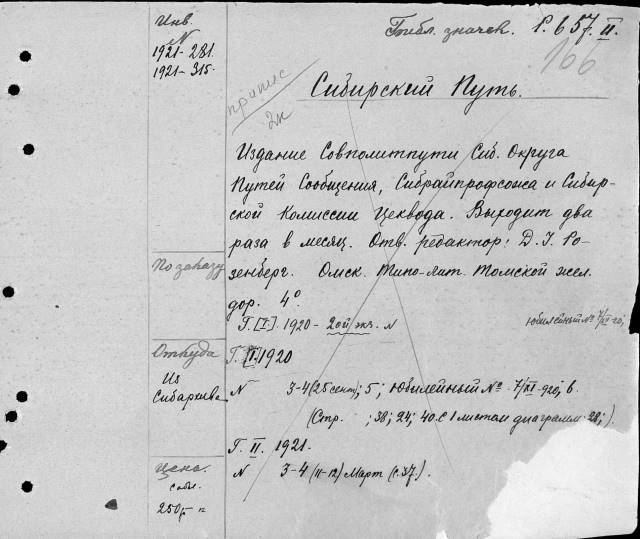 Инв.
N
1921-281.
1921-315.
Библ. значек. Р. 657. II.
166
2н
Сибирский Путь.
Издание Совполитпути Сиб. Округа
Путей Сообщения, Сибрайпрофсожа и Сибир-
ской Комиссии Цеквода. Выходит два
раза в месяц. Отв. редактор: Д. I. Ро-
зенберг. Омск. Типо-лит. Томской жел.
дор. 4°.
По заказу
Г. [I]. 1920 - 2ой экз. N Юбилейный № 7/XI-20;
Откуда
Из
Сибархива
Г. [I] 1920
N 3-4 (25 сент); 5; Юбилейный № 7/XI-920; 6.
(Стр. ; 38; 24; 40. с 1 листом диаграмм. 28; ).
Г. II. 1921.
N 3-4 (11-12) Март (с. 37.).
Цена.
250р